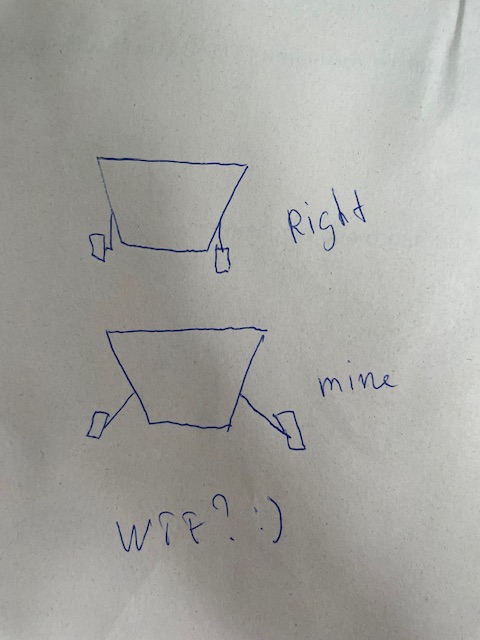 Right
mine
WTF? :)